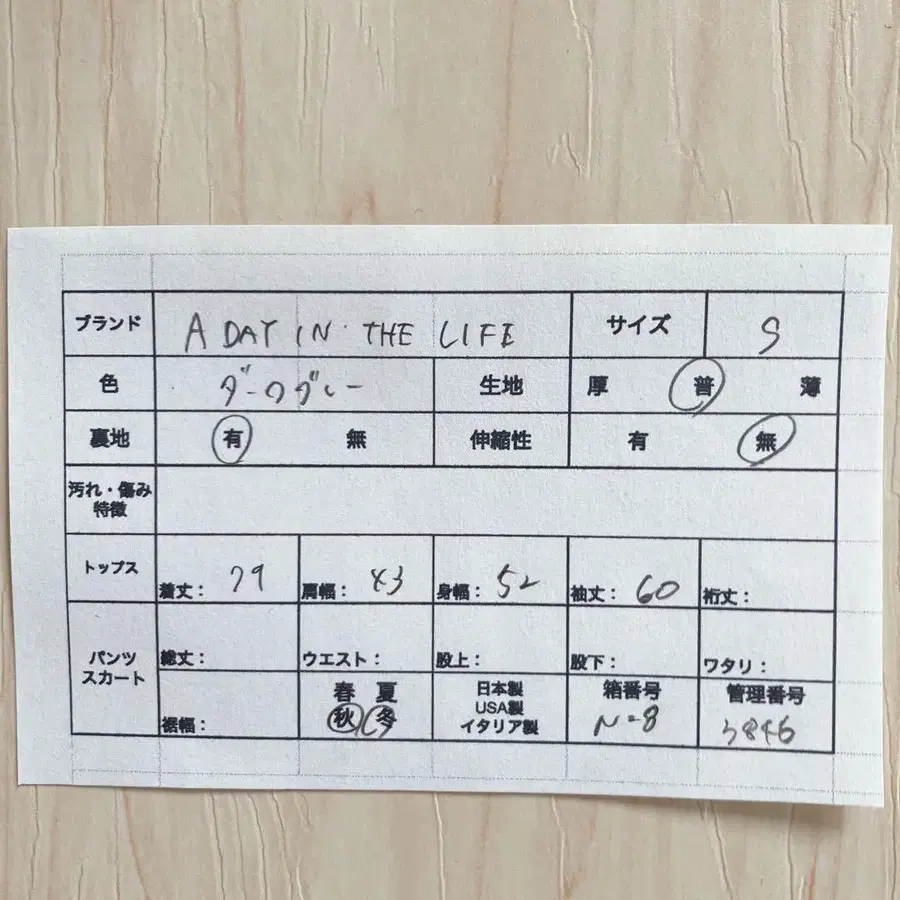 ブランド A DAY IN THE LIFE サイズ S
色 ダークグレー 生地 厚 普 薄
裏地 有 無 伸縮性 有 無
汚れ・傷み
特徴
トップス 着丈: 79 肩幅: 43 身幅: 52 袖丈: 60 裄丈:
パンツ
スカート
総丈: ウエスト: 股上: 股下: ワタリ:
裾幅:
春 夏
秋 冬
日本製
USA製
イタリア製
箱番号
N-8
管理番号
3846